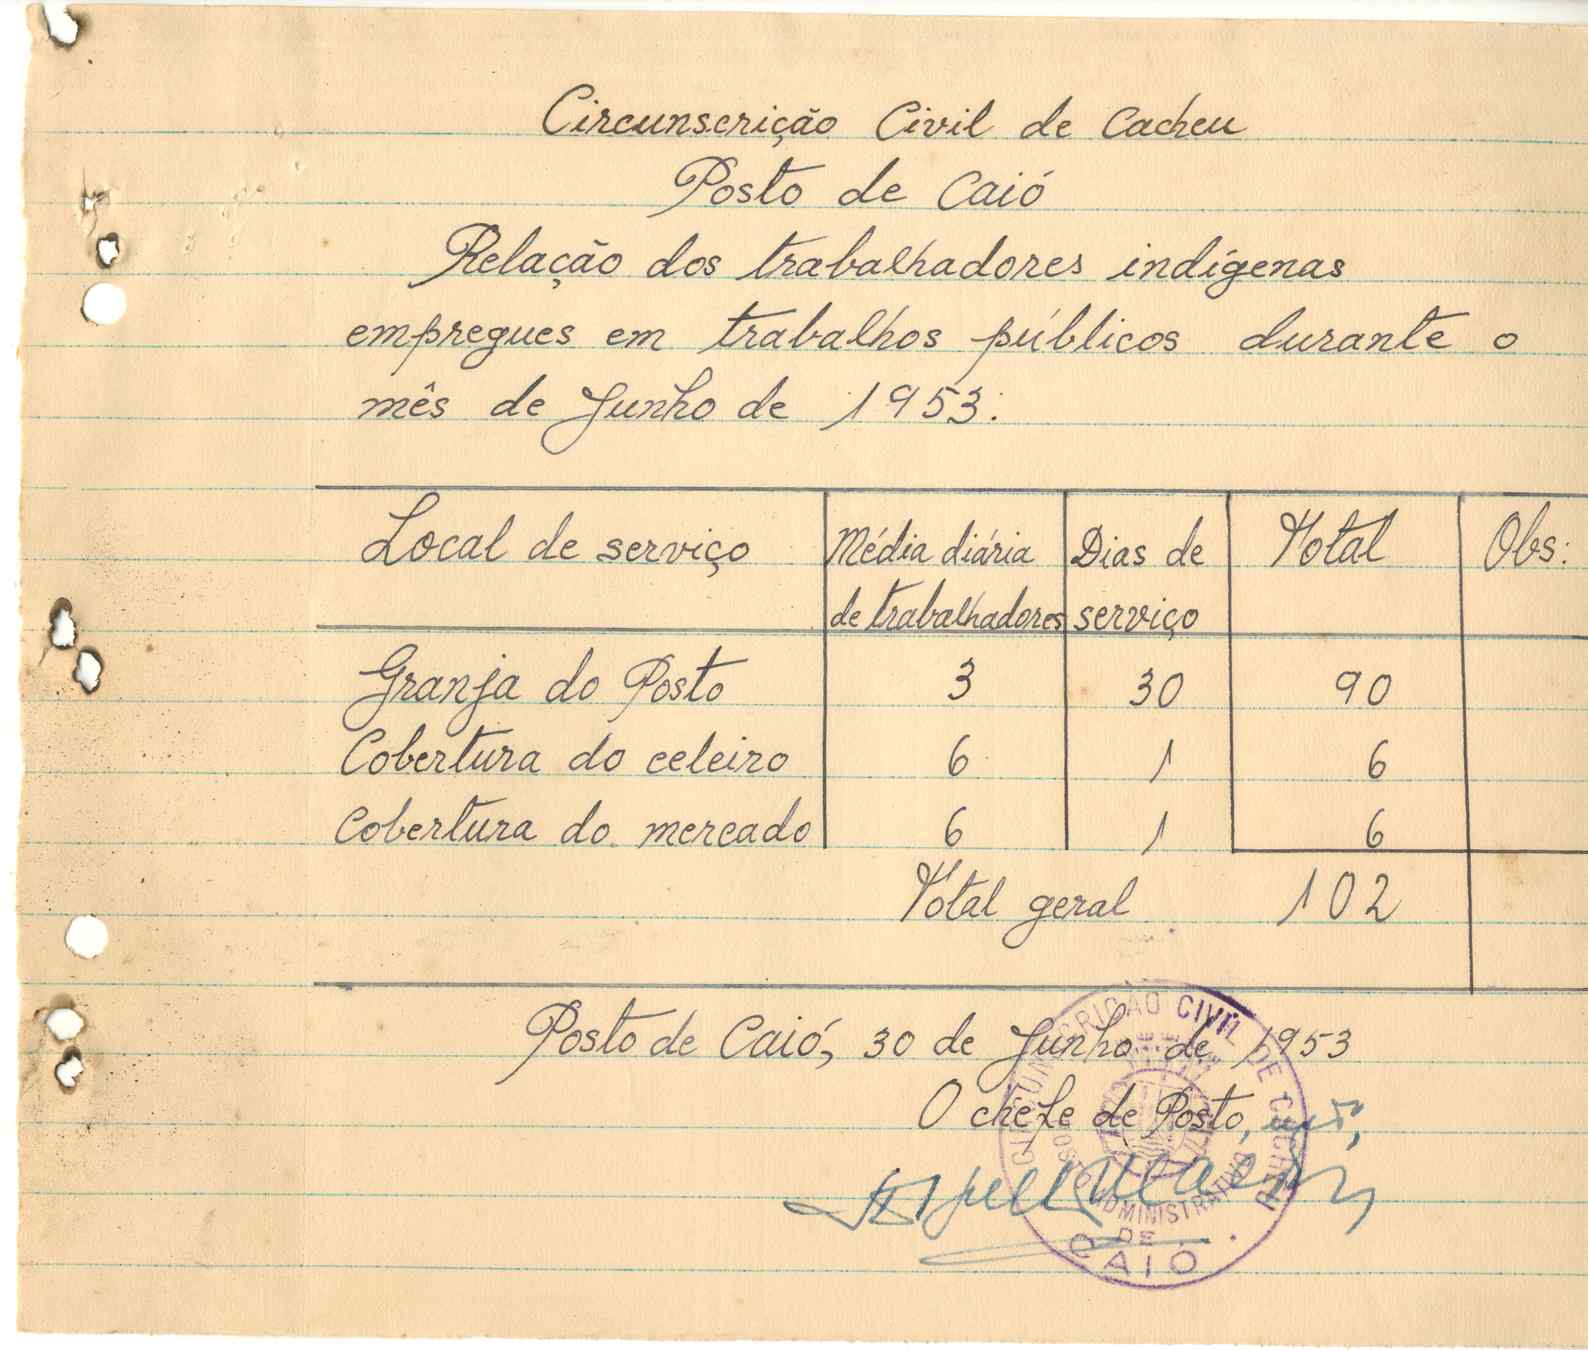 Circunscrição Civil de Cacheu
Posto de Caió
Relação dos trabalhadores indígenas
empregues em trabalhos públicos durante o
mês de Junho de 1953:
Local de serviço Média diária de trabalhadores Dias de serviço Total Obs:
Granja do Posto 3 30 90
Cobertura do celeiro 6 1 6
Cobertura do mercado 6 1 6
Total geral 102
Posto de Caió, 30 de Junho de 1953
O chefe de Posto,
CIRCUNSCRIÇÃO CIVIL DE CACHEU
POSTO ADMINISTRATIVO
DE
CAIÓ